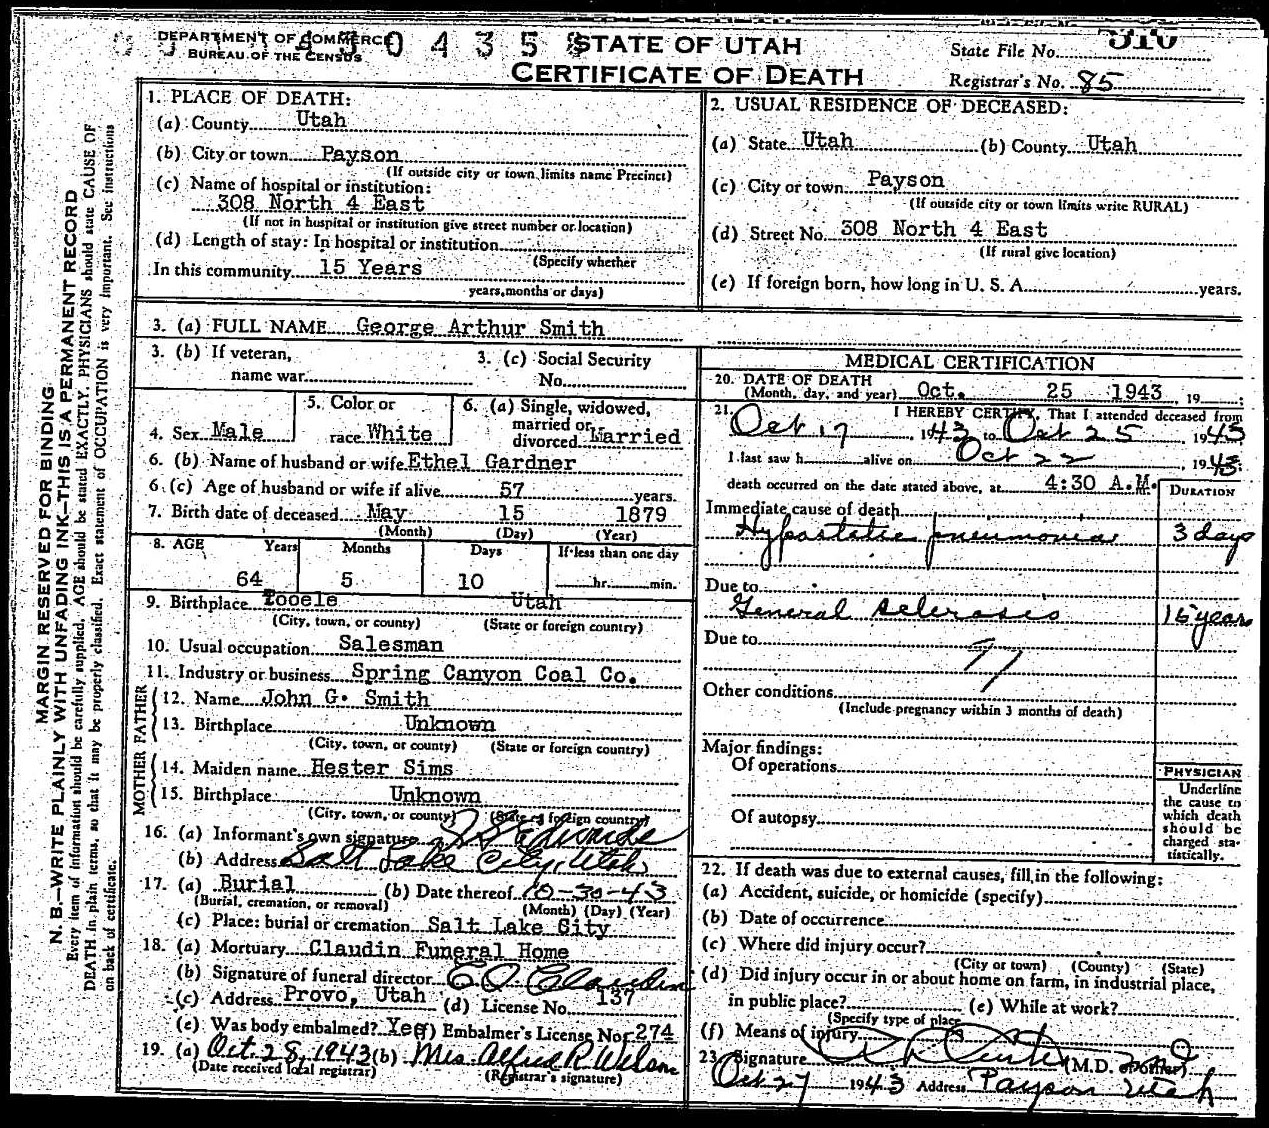 DEPARTMENT OF COMMERCE
BUREAU OF THE CENSUS
4 3 0 4 3 5
STATE OF UTAH
CERTIFICATE OF DEATH
State File No. 310
Registrar's No. 85
MARGIN RESERVED FOR BINDING
N. B.—WRITE PLAINLY WITH UNFADING INK—THIS IS A PERMANENT RECORD
Every item of information should be carefully supplied. AGE should be stated EXACTLY. PHYSICIANS should state CAUSE OF
DEATH in plain terms, so that it may be properly classified. Exact statement of OCCUPATION is very important. See instructions
on back of certificate.
1. PLACE OF DEATH:
(a) County Utah
(b) City or town Payson
(If outside city or town limits name Precinct)
(c) Name of hospital or institution:
308 North 4 East
(If not in hospital or institution give street number or location)
(d) Length of stay: In hospital or institution
(Specify whether
In this community 15 Years
years, months or days)
2. USUAL RESIDENCE OF DECEASED:
(a) State Utah (b) County Utah
(c) City or town Payson
(If outside city or town limits write RURAL)
(d) Street No. 308 North 4 East
(If rural give location)
(e) If foreign born, how long in U. S. A. years.
3. (a) FULL NAME George Arthur Smith
3. (b) If veteran,
name war
3. (c) Social Security
No.
4. Sex Male
5. Color or
race White
6. (a) Single, widowed,
married or
divorced Married
6. (b) Name of husband or wife Ethel Gardner
6. (c) Age of husband or wife if alive 57 years.
7. Birth date of deceased May 15 1879
(Month) (Day) (Year)
8. AGE Years Months Days If less than one day
64 5 10 hr. min.
9. Birthplace Tooele Utah
(City, town, or county) (State or foreign country)
10. Usual occupation Salesman
11. Industry or business Spring Canyon Coal Co.
FATHER
12. Name John G. Smith
13. Birthplace Unknown
(City, town, or county) (State or foreign country)
MOTHER
14. Maiden name Hester Sims
15. Birthplace Unknown
(City, town, or county) (State or foreign country)
16. (a) Informant's own signature Edwards
(b) Address Salt Lake City, Utah
17. (a) Burial (b) Date thereof 10-30-43
(Burial, cremation, or removal) (Month) (Day) (Year)
(c) Place: burial or cremation Salt Lake City
18. (a) Mortuary Claudin Funeral Home
(b) Signature of funeral director C O Claudin
(c) Address Provo, Utah (d) License No. 137
(e) Was body embalmed? Yes (f) Embalmer's License No. 274
19. (a) Oct. 28, 1943 (b) Mrs. Alfred R. Wilson
(Date received local registrar) (Registrar's signature)
MEDICAL CERTIFICATION
20. DATE OF DEATH
(Month, day, and year) Oct. 25 1943, 19 ;
21. I HEREBY CERTIFY, That I attended deceased from
Oct 17, 1943 to Oct 25, 1943
I last saw h alive on Oct 22, 1943;
death occurred on the date stated above, at 4:30 A.M.
DURATION
Immediate cause of death
Hypostatic pneumonia 3 days
Due to
General sclerosis 15 years
Due to
97
Other conditions
(Include pregnancy within 3 months of death)
Major findings:
Of operations
Of autopsy
PHYSICIAN
Underline
the cause to
which death
should be
charged sta-
tistically.
22. If death was due to external causes, fill in the following:
(a) Accident, suicide, or homicide (specify)
(b) Date of occurrence
(c) Where did injury occur?
(City or town) (County) (State)
(d) Did injury occur in or about home on farm, in industrial place,
in public place? (e) While at work?
(Specify type of place)
(f) Means of injury
23. Signature (M.D. or other)
Oct 27 1943 Address Payson Utah